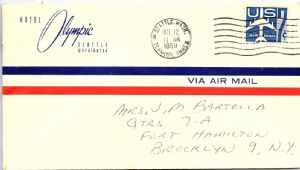 HOTEL
Olympic
SEATTLE
WASHINGTON
SEATTLE, WASH.
OCT 12
11 AM
1959
TERMINAL ANNEX
US
AIR MAIL
VIA AIR MAIL
MRS. J. M BARTELLA
QTRS. 7-A
FORT HAMILTON
BROOKLYN 9, N.Y.